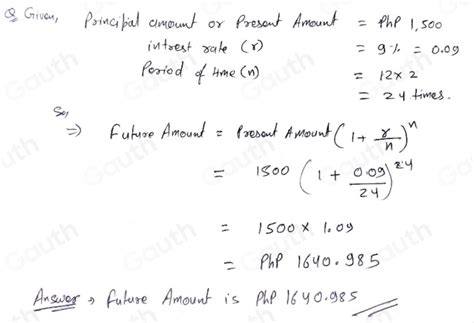 Q Given, Principal amount or Present Amount = PhP 1,500
intrest rate (r) = 9% = 0.09
Period of time (n) = 12 x 2
= 24 times.
So,
⇒ Future Amount = Present Amount (1 + r/n)^n
= 1500 (1 + 0.09/24)^24
= 1500 x 1.09
= PhP 1640.985
Answer → Future Amount is PhP 1640.985